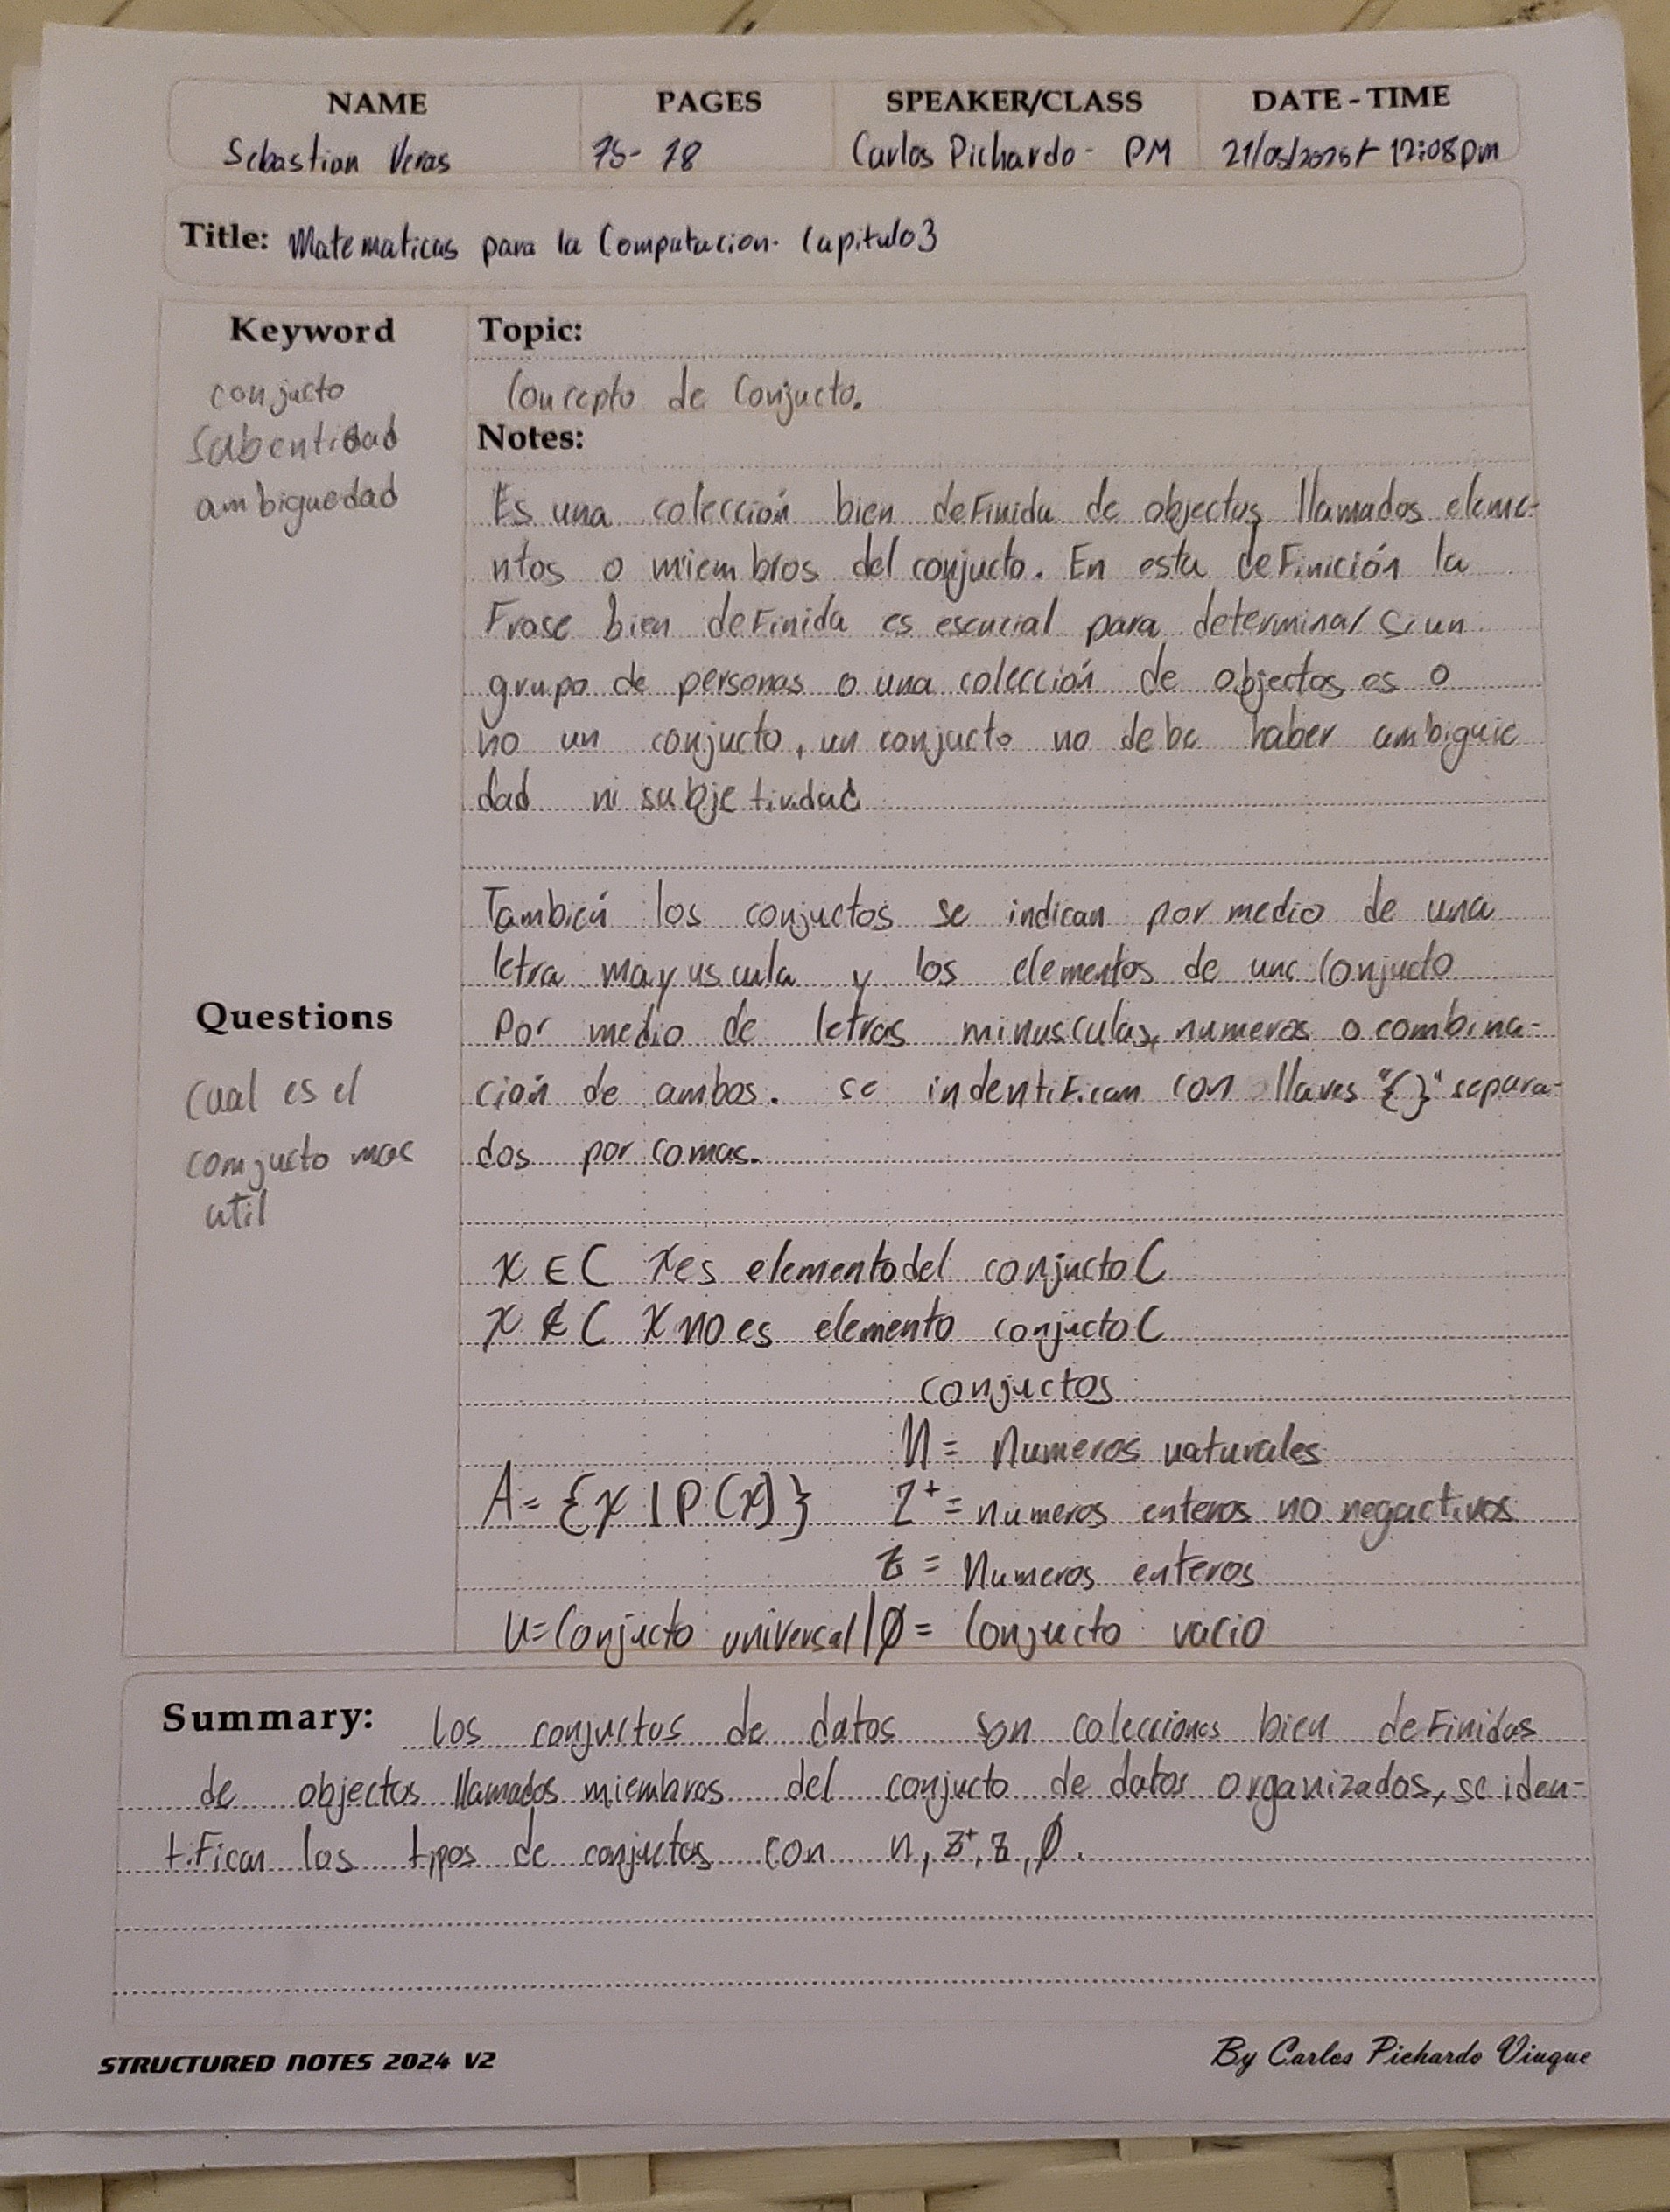 NAME PAGES SPEAKER/CLASS DATE - TIME
Sebastian Veras 75- 78 Carlos Pichardo - PM 21/05/2025/- 12:08pm
Title: Matematicas para la Computacion. Capitulo 3
Keyword
conjucto
Sabentidad
ambiguedad
Topic:
Concepto de Conjucto.
Notes:
Es una colección bien definida de objectos llamados eleme-
ntos o miembros del conjucto. En esta definición la
Frase bien definida es esencial para determinar si un
grupo de personas o una colección de objectos es o
no un conjucto, un conjucto no debe haber ambigüe
dad ni subjetividad
También los conjuctos se indican por medio de una
letra mayuscula y los elementos de una conjucto
Por medio de letras minusculas, numeros o combina-
ción de ambos. se indentifican con llaves "{}" separa-
dos por comas.
Questions
Cual es el
comjucto mas
util
x ∈ C x es elemento del conjucto C
x ∉ C x no es elemento conjucto C
conjuctos
N = Numeros naturales
A = {x | P(x)} Z⁺ = numeros enteros no negactivos
Z = Numeros enteros
U = Conjucto universal | Ø = Conjucto vacio
Summary: Los conjuctos de datos son colecciones bien definidas
de objectos llamados miembros del conjucto de datos organizados, se iden-
tifican los tipos de conjuctos con n, Z⁺, Z, Ø.
STRUCTURED NOTES 2024 V2
By Carlos Pichardo Viuque